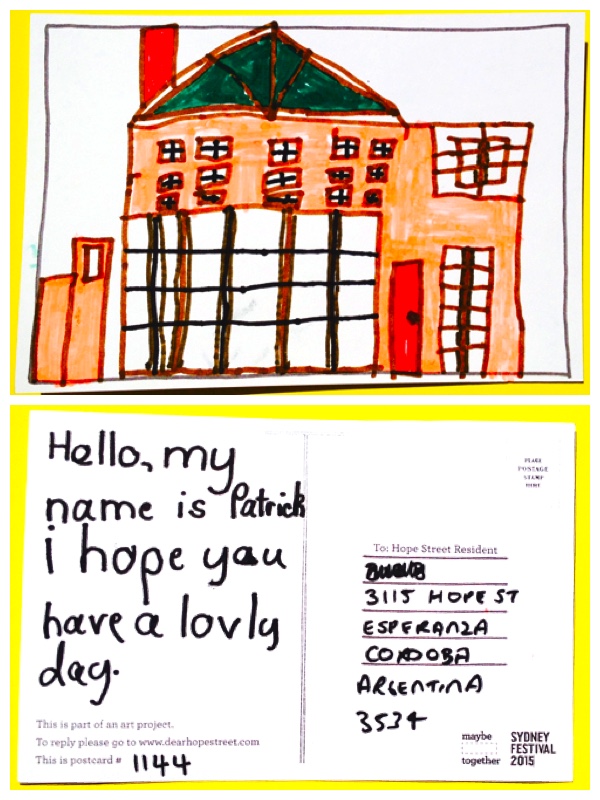 Hello, my
name is Patrick
i hope you
have a lovly
day.
This is part of an art project.
To reply please go to www.dearhopestreet.com
This is postcard # 1144
PLACE
POSTAGE
STAMP
HERE
To: Hope Street Resident
3115 HOPE ST
ESPERANZA
CORDOBA
ARGENTINA
3534
maybe
together
SYDNEY
FESTIVAL
2015